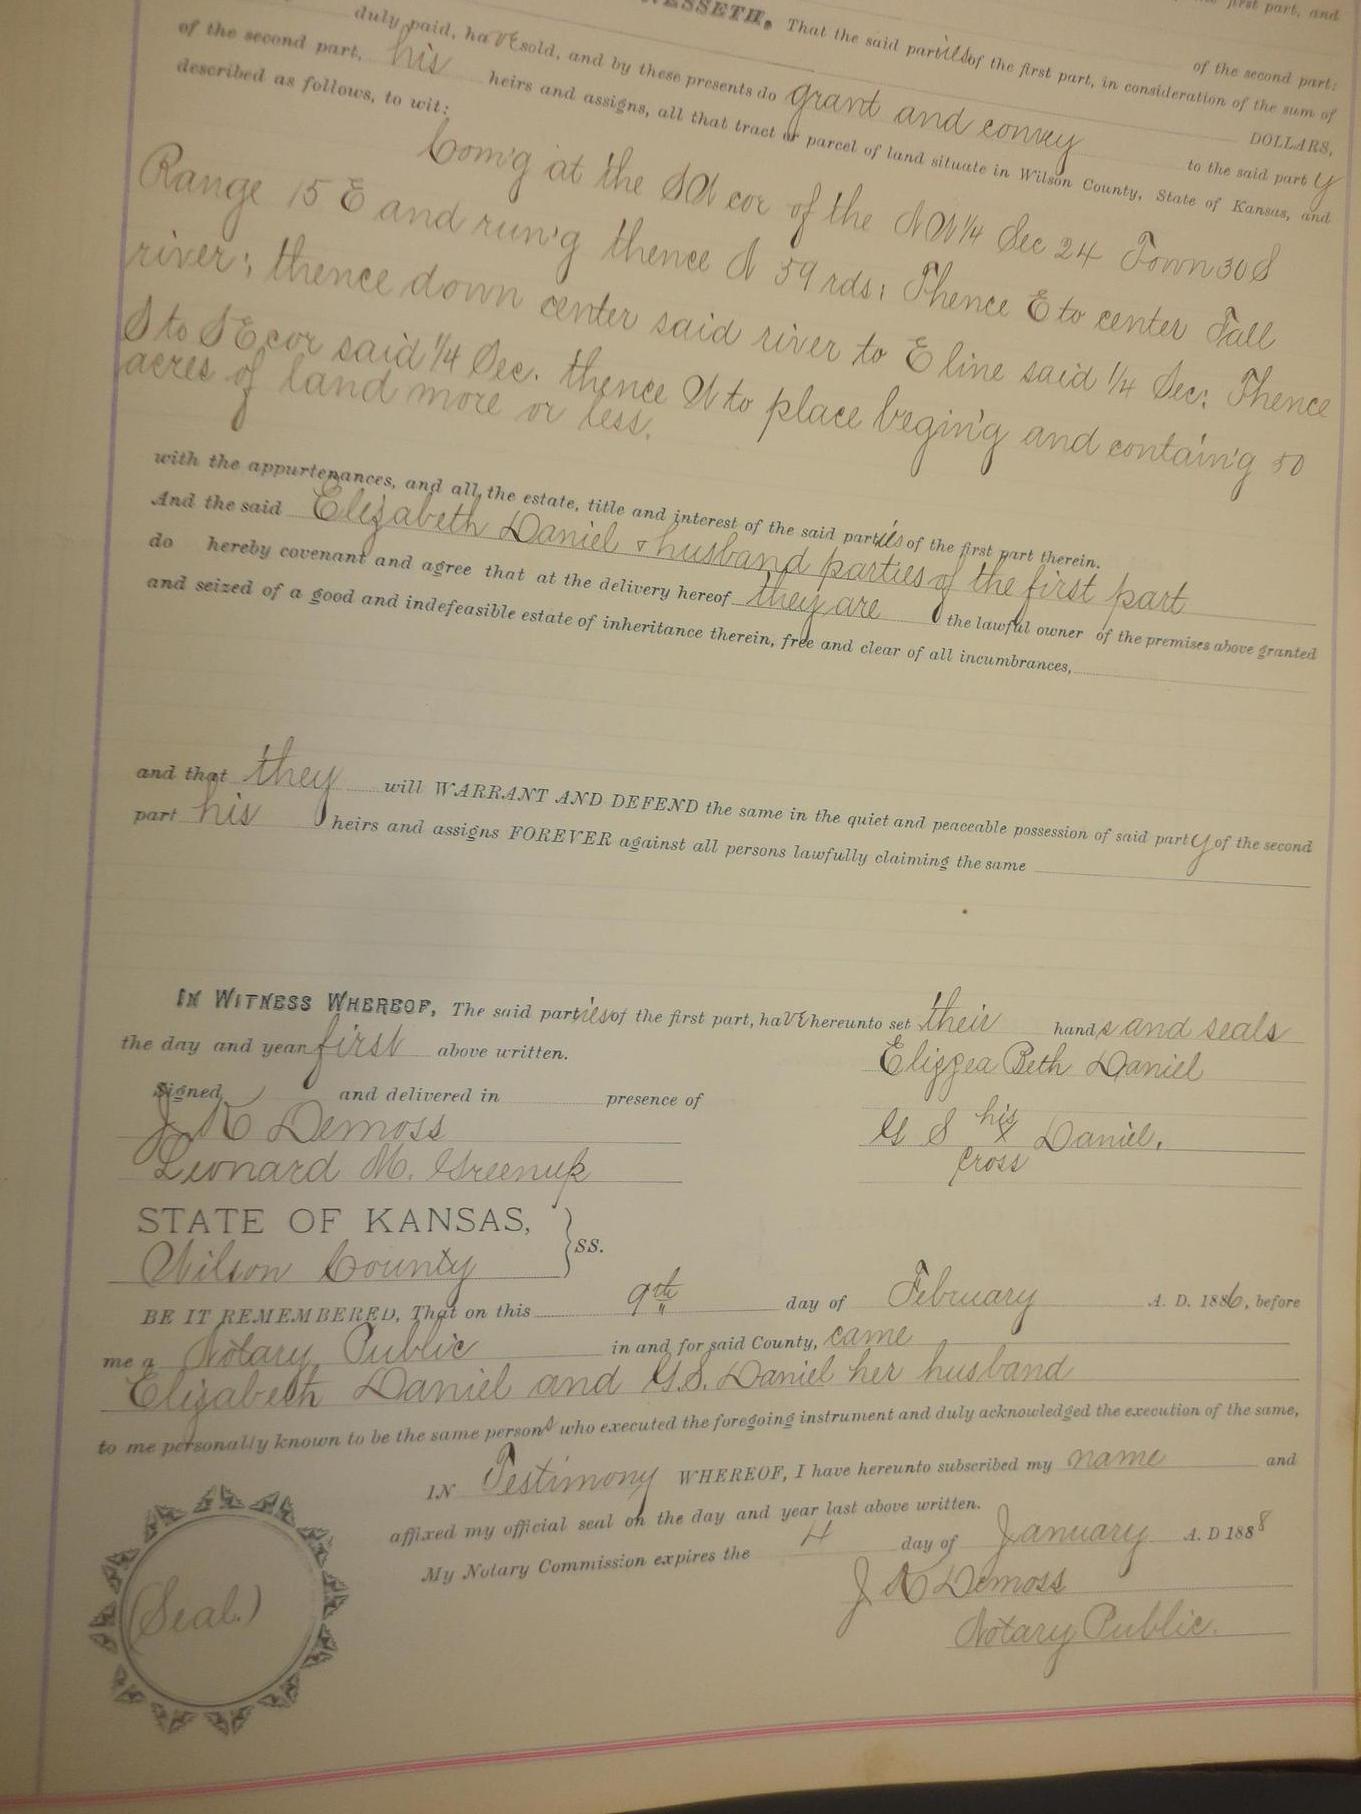 first part, and
of the second part:
WITNESSETH, That the said parties of the first part, in consideration of the sum of
DOLLARS,
duly paid, have sold, and by these presents do grant and convey to the said party
of the second part, his heirs and assigns, all that tract or parcel of land situate in Wilson County, State of Kansas, and
described as follows, to wit:
Com'g at the SW cor of the NW 1/4 Sec 24 Town 30 S
Range 15 E and run'g thence N 59 rds; Thence E to center Fall
river; thence down center said river to E line said 1/4 Sec; Thence
S to SE cor said 1/4 Sec. thence W to place begin'g and contain'g 50
acres of land more or less.
with the appurtenances, and all the estate, title and interest of the said parties of the first part therein.
And the said Elizabeth Daniel & husband parties of the first part
do hereby covenant and agree that at the delivery hereof they are the lawful owner of the premises above granted
and seized of a good and indefeasible estate of inheritance therein, free and clear of all incumbrances,
and that they will WARRANT AND DEFEND the same in the quiet and peaceable possession of said party of the second
part his heirs and assigns FOREVER against all persons lawfully claiming the same
IN WITNESS WHEREOF, The said parties of the first part, have hereunto set their hands and seals
the day and year first above written.
Elizzea Beth Daniel
Signed and delivered in presence of
J K Demoss
G S his x cross Daniel.
Leonard M.
STATE OF KANSAS,
Wilson County } ss.
BE IT REMEMBERED, That on this 9th day of February A. D. 1886, before
me a Notary Public in and for said County, came
Elizabeth Daniel and G.S. Daniel her husband
to me personally known to be the same persons who executed the foregoing instrument and duly acknowledged the execution of the same,
IN Testimony WHEREOF, I have hereunto subscribed my name and
affixed my official seal on the day and year last above written.
My Notary Commission expires the 4 day of January A. D 1888
(Seal.)
J K Demoss
Notary Public.